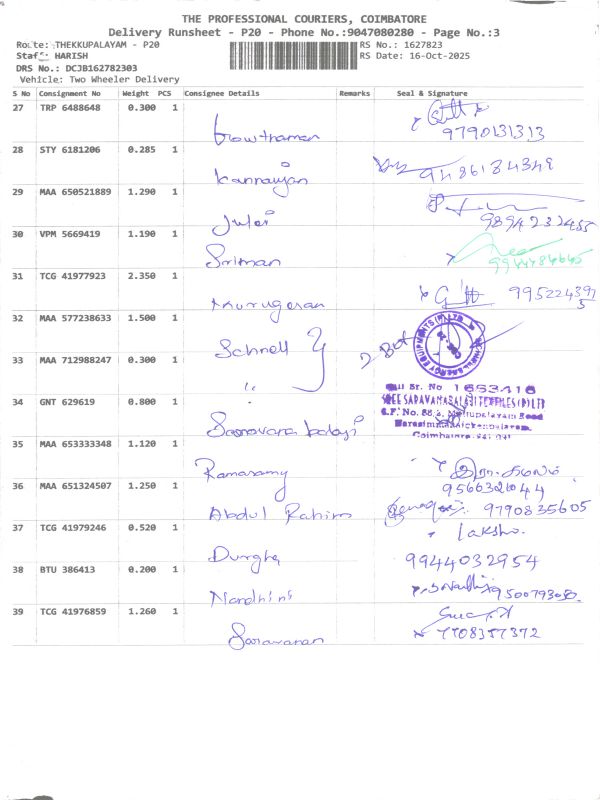 THE PROFESSIONAL COURIERS, COIMBATORE
Delivery Runsheet - P20 - Phone No.:9047080280 - Page No.:3
Route: THEKKUPALAYAM - P20 RS No.: 1627823
Staff: HARISH RS Date: 16-Oct-2025
DRS No.: DCJB162782303
Vehicle: Two Wheeler Delivery
S No Consignment No Weight PCS Consignee Details Remarks Seal & Signature
27 TRP 6488648 0.300 1
Gowthaman 9790131313
28 STY 6181206 0.285 1
Kannaiyan 9486184349
29 MAA 650521889 1.290 1
Julei 9894232455
30 VPM 5669419 1.190 1
Sriman
31 TCG 41977923 2.350 1
Murugesan 9952243975
32 MAA 577238633 1.500 1
Schnell
33 MAA 712988247 0.300 1
"
34 GNT 629619 0.800 1
Saravana balaji
SREE SARAVANABALAJI TEXTILES (P) LTD
Coimbatore
35 MAA 653333348 1.120 1
Ramasamy
36 MAA 651324507 1.250 1
Abdul Rahim 9790835605
37 TCG 41979246 0.520 1
Durgha 9944032954
38 BTU 386413 0.200 1
Nandhini
39 TCG 41976859 1.260 1
Saravanan 7708357372